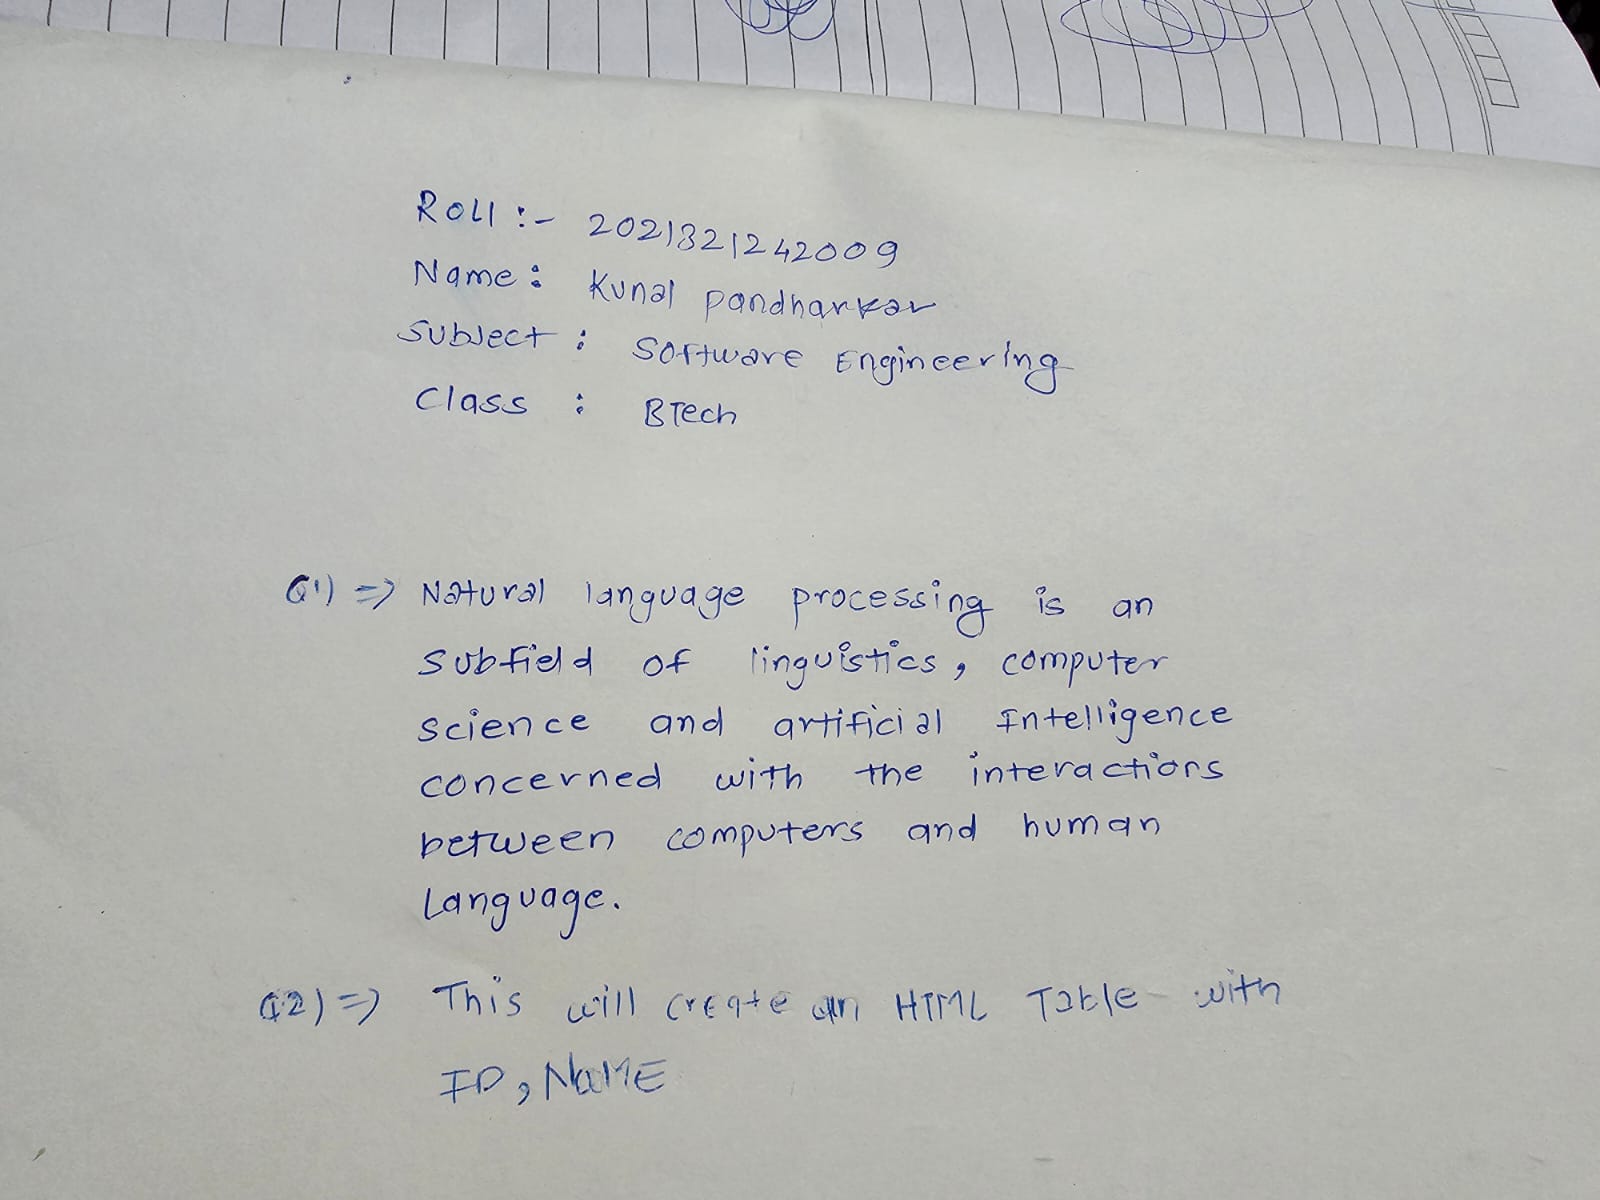 Roll :- 2021321242009
Name : Kunal Pandharkar
Subject : Software Engineering
Class : BTech
Q1) => Natural language processing is an
subfield of linguistics, computer
science and artificial Intelligence
concerned with the interactions
between computers and human
Language.
Q2) => This will create an HTML Table with
ID, NaME